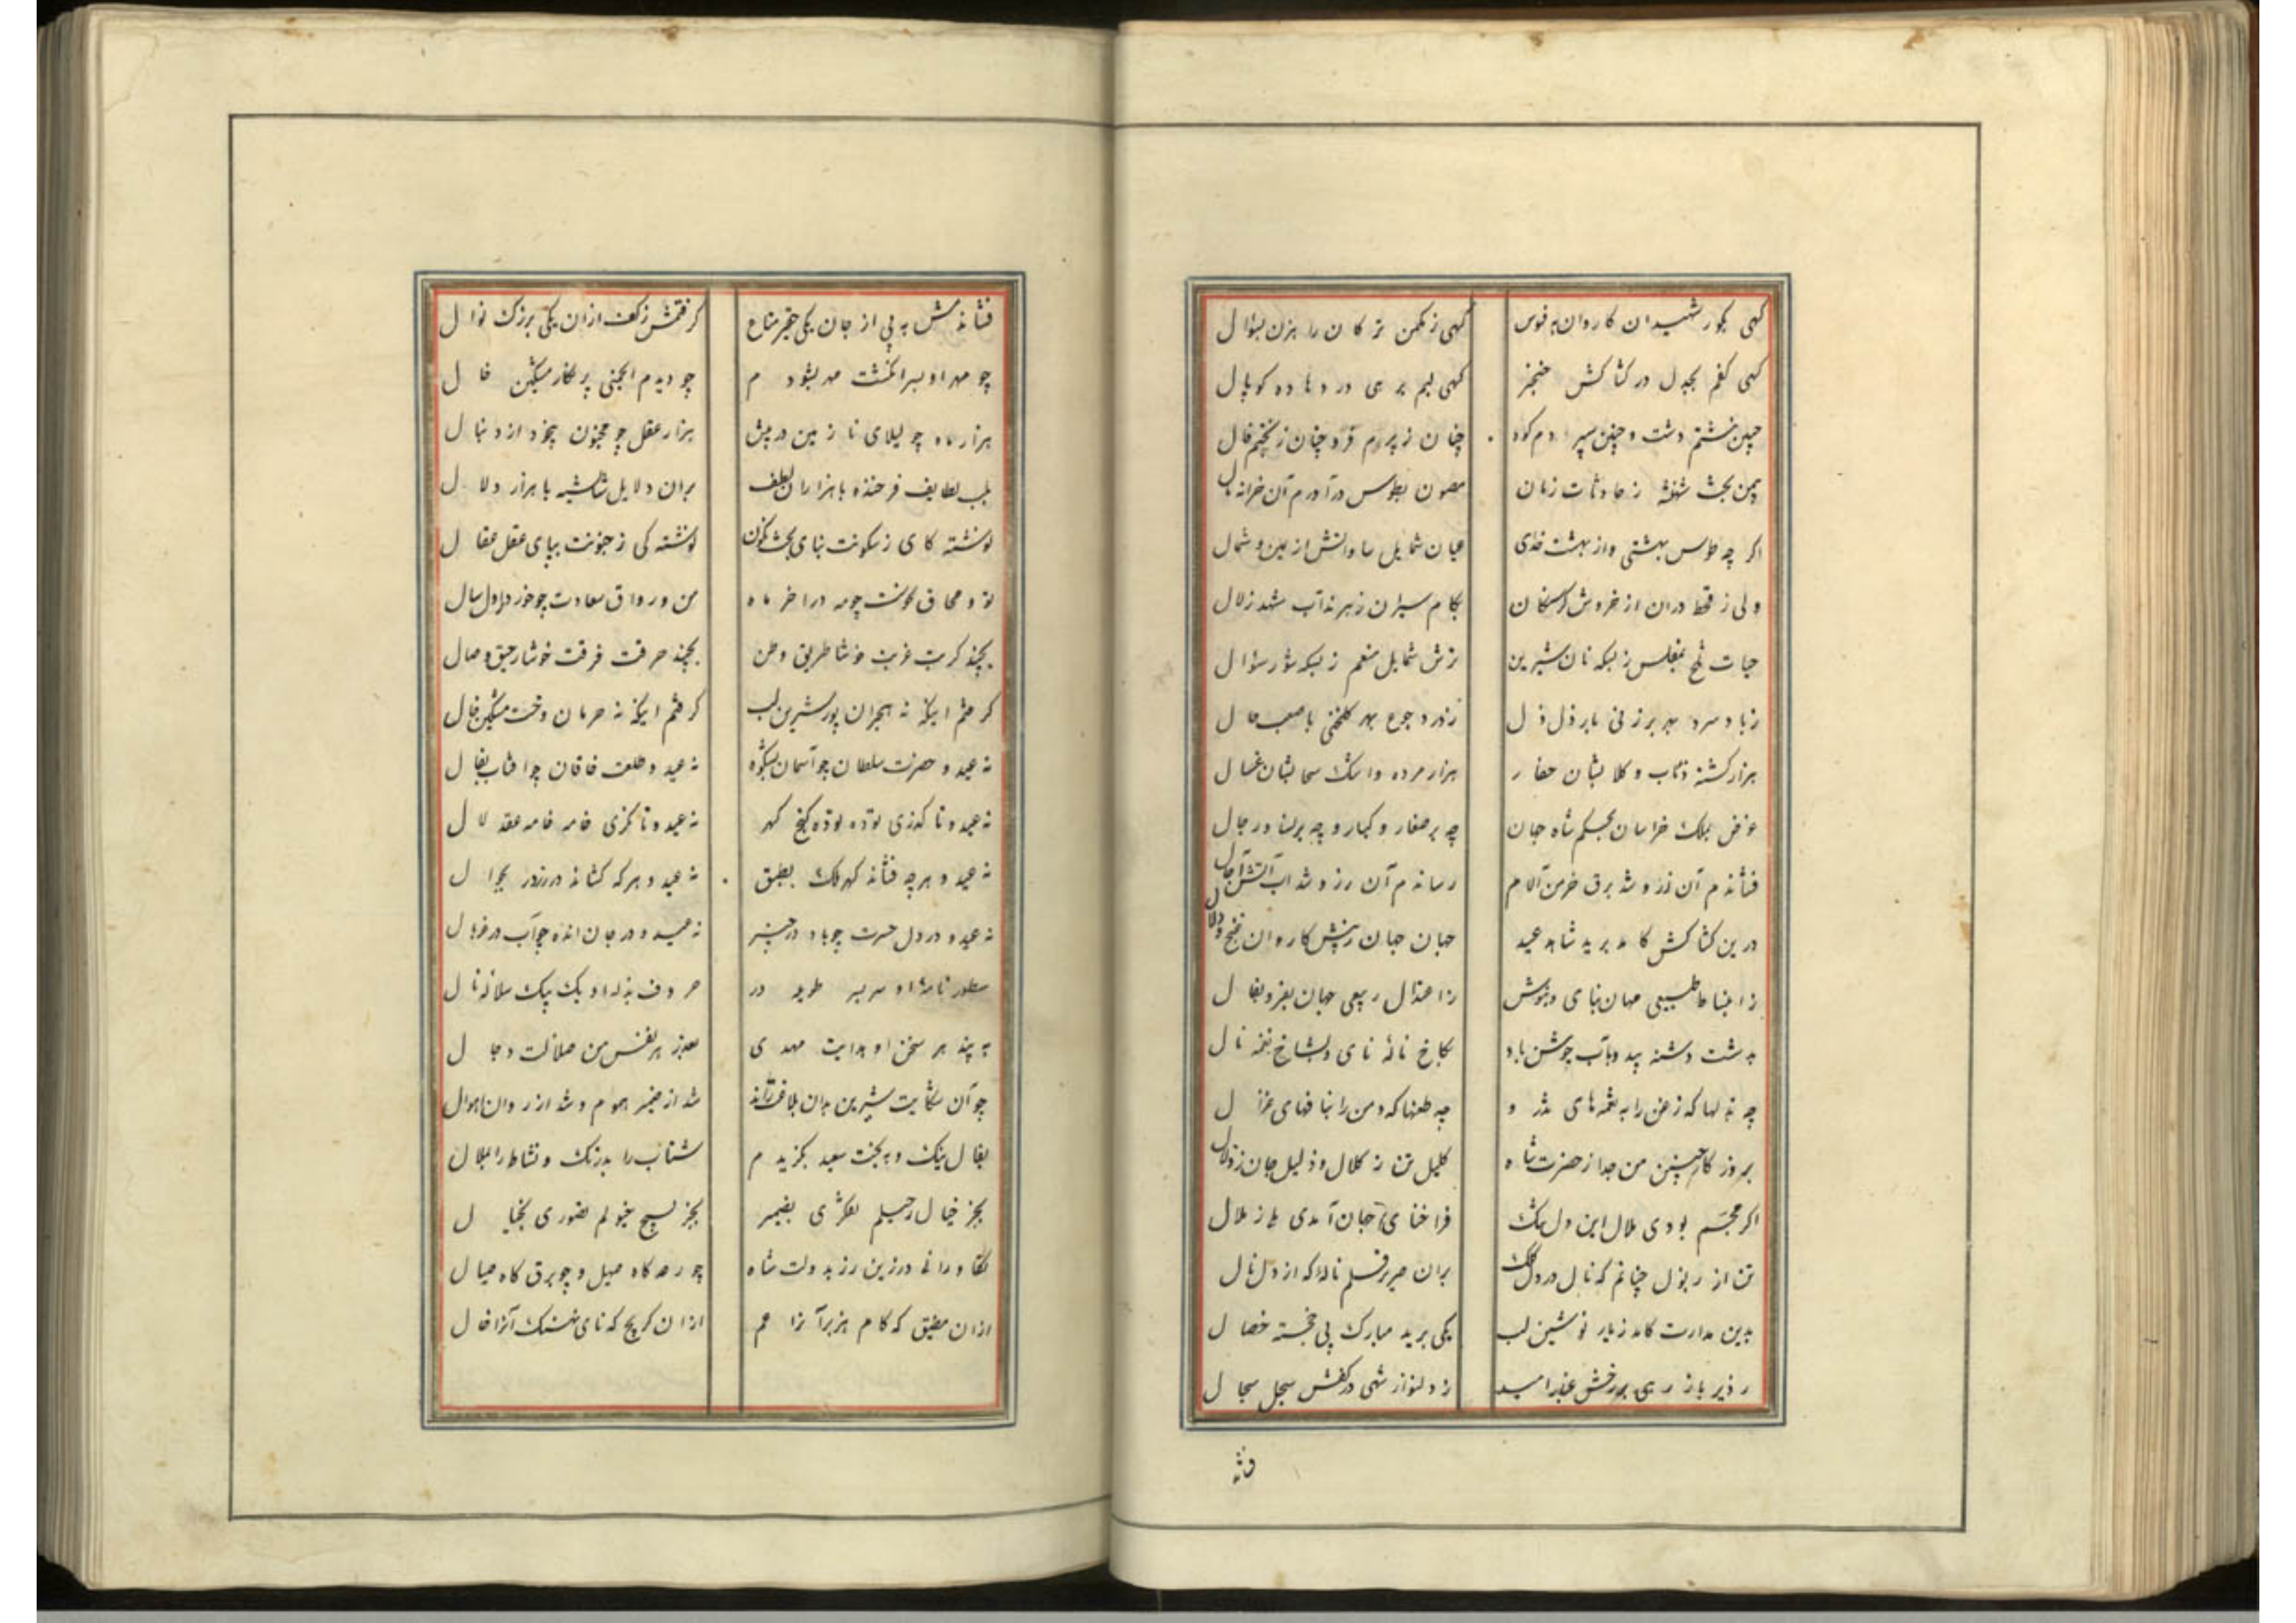 کهی بکور شهیدان کاروان به فوس کهی ز مکمن ترکان راهزن بسؤال
کهی کفم بجدل در کشاکش خنجر کهی لبم بر می در دهاده کوپال
چنین نبشتم دشت و چنین سپردم کوه چنان ز پیرم فر و چنان ز بختم فال
بیمن بخت شهنشه ز حادثات زمان مصون بطوس درآوردم آن خزانه مال
اگر چه طوس بهشتی و از بهشت فدی عیان شمایل ساوانش از یمین و شمال
ولی ز قحط در آن از خروش کرسنکان بکام سیران زهر مذاب شهد زلال
حیات تلخ بمفلس ز بسکه نان شیرین ترش شمایل منعم ز بسکه شور سؤال
ز باد سرد بهر برزنی بابر ذل ذل ز درد جوع بهر کلخنی باصعب حال
هزار کشته ذئاب و کلابشان حفار هزار مرده و اشک سحابشان غسال
غرض بملک خراسان بحکم شاه جهان چه بر صغار و کبار و چه بر نسا و رجال
فشاندم آن زر و شد برق خرمن آلام رساندم آن رز و شد آب آتش آجال
درین کشاکش کامد برید شاهد عید جهان جهان ز پیش کاروان غنج و دلال
ز اعتدال ربیعی جهان بفر و بها ل
بدشت دشنه بید و بآب جوشن باد بکاخ ناله نای و بشاخ نغمه نال
چه طعنها که دمن را بنافهای غزال
بروز کار چنین من جدا ز حضرت شاه کلیل تن ز کلال و ذلیل جان ز
اگر مجسم بودی ملال این دل تنک فراخنای جهان آمدی ملا ز ملال
تن از چنانم که نال در دل کلک بران صریر قلم نالدا که از دل نال
بدین مدارت کامد ز یار نوشین لب یکی برید مبارک پی خجسته خصال
ز دلنواز شهی در کفش سجل سجال
فشاند
فشاندمش به پی از جان یکی حقیر متاع کرفتمش ز کف از آن یکی بزرک نوال
چو مهر او بسر انکشت مهر بشودم چو دیدم انجمنی پر نکار مشکین خال
هزار ماه چو لیلای نازنین در پیش هزار عقل چو مجنون بیخود از دنبال
بلب لطایف فرخنده با هزاران لطف بران دلایل شاشیه با هزار دلال
نوشته کای ز سکونت بنای بخت نکون نوشته کی ز جنونت بپای عقل عقال
تو و محاق نحوست چو مه در آخر ماه من و رواق سعادت چو خور در اول سال
بچند کربت غربت خوشا طریق وطن بچند حرقت فرقت خوشا رحیق وصال
کرفتم اینکه نه هجران پور شیرین لب کرفتم اینکه نه حرمان دخت مشکین خال
نه عید و حضرت سلطان چو آسمان بشکوه نه عید و طلعت خاقان چو آفتاب بفال
نه عید و تا که زنی توده توده کنج کهر نه عید و تا نکزی خامه خامه عقد لال
نه عید و هر چه فشاند کهر ملک بطبق نه عید و هر که کشاند در زر بجوال
نه عید و در دل حسرت چو باد در چنبر نه عید و در جان انده چو آب در غربال
سطور نامه او سربسر طویله در حروف بذله او یک بیک سلاله نال
به پند هر سخن او هدایت مهدی معجز هر نفس من ضلالت دجال
چو آن شکایت شیرین بدان بلاغت راند شد از ضمیر هموم و شد از روان اهوال
بفال نیک و به بخت سعید بکزیدم شتاب را بدرنک و نشاط را بملال
بجز خیال رحیلم تفکری بضمیر بجز بسیج خیولم تصوری بخیال
تکاورانی در زین رز بدولت شاه چو رعد کاه صهیل و چو برق کاه صیال
از آن مضیق که کام هزبر آنرا عم از آن کریچ که نای نهنک آنرا خال